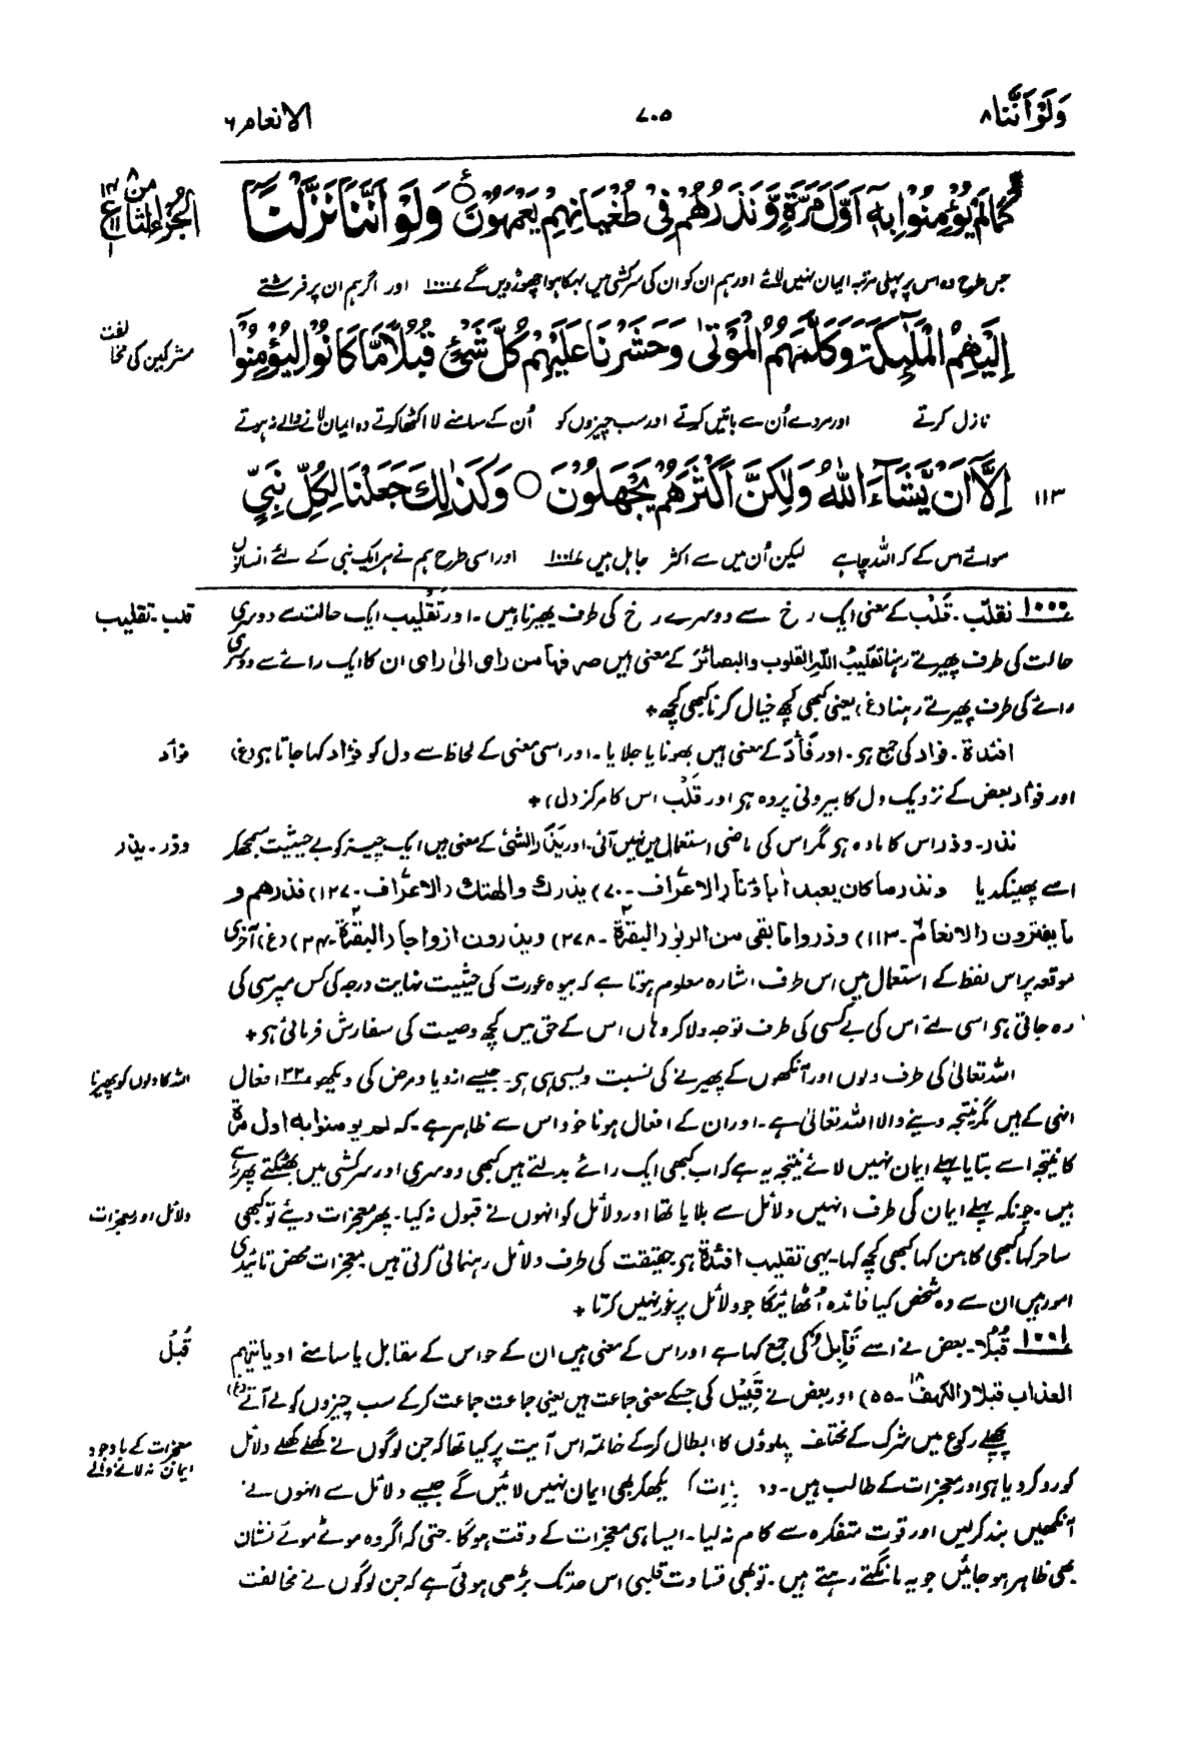 وَلَوْ اَنَّنَا ۸
۷۰۵
الانعام ۶
كَمَا لَمْ يُؤْمِنُوْا بِهٖٓ اَوَّلَ مَرَّةٍ وَّنَذَرُهُمْ فِيْ طُغْيَانِهِمْ يَعْمَهُوْنَ ۝ وَلَوْ اَنَّنَا نَزَّلْنَا
الجزء الثامن
جس طرح وہ اس پر پہلی مرتبہ ایمان نہیں لائے اور ہم ان کو ان کی سرکشی میں بہکا ہوا چھوڑ دیں گے اور اگر ہم ان پر فرشتے
اِلَيْهِمُ الْمَلٰٓئِكَةَ وَكَلَّمَهُمُ الْمَوْتٰى وَحَشَرْنَا عَلَيْهِمْ كُلَّ شَيْءٍ قُبُلًا مَّا كَانُوْا لِيُؤْمِنُوْٓا
مشرکین کی مخالفت
نازل کرتے اور مردے اُن سے باتیں کرتے اور سب چیزوں کو اُن کے سامنے لا اکٹھا کرتے وہ ایمان لانے والے نہ ہوتے
۱۱۳ اِلَّآ اَنْ يَّشَآءَ اللّٰهُ وَلٰكِنَّ اَكْثَرَهُمْ يَجْهَلُوْنَ ۝ وَكَذٰلِكَ جَعَلْنَا لِكُلِّ نَبِيٍّ
سوائے اس کے کہ اللہ چاہے لیکن اُن میں سے اکثر جاہل ہیں ۱۰۰۱ اور اسی طرح ہم نے ہر ایک نبی کے لئے انسانوں
۱۰۰۰ نقلب۔ قَلْب کے معنی ایک رخ سے دوسرے رخ کی طرف پھیرنا ہیں۔ اور تَقْلِیب ایک حالت سے دوسری
قلب۔ تقلیب
حالت کی طرف پھیرتے رہنا تقلیبُ اللّٰہِ القلوب والبصائر کے معنی ہیں صرفہا من رای الیٰ رای ان کا ایک رائے سے دوسری
رائے کی طرف پھیرتے رہنا (غ) یعنی کبھی کچھ خیال کرنا کبھی کچھ +
افئدۃ۔ فواد کی جمع ہے۔ اور فَأَدَ کے معنی ہیں بھونا یا جلایا۔ اور اسی معنی کے لحاظ سے دل کو فؤاد کہا جاتا ہے (غ)
فؤاد
اور فؤاد بعض کے نزدیک دل کا بیرونی پردہ ہے اور قَلْب اس کا مرکز (دل) +
نذر۔ وذر اس کا مادہ ہے مگر اس کی ماضی استعمال میں نہیں آئی۔ اور یَذَرُ الشئ کے معنی ہیں ایک چیز کو بے حیثیت سمجھ کر
وذر۔ یذر
اسے پھینک دیا ونذر ما کان یعبد اٰباؤنا (الاعراف۔۷۰) یذرک واٰلہتک (الاعراف۔۱۲۷) فذرھم و
ما یفترون (الانعام۔۱۱۳) وذروا ما بقی من الربوٰ (البقرۃ۔۲۷۸) ویذرون ازواجا (البقرۃ۔۲۳۴) (غ) آخری
موقعہ پر اس لفظ کے استعمال میں اس طرف اشارہ معلوم ہوتا ہے کہ بیوہ عورت کی حیثیت نہایت درجہ کی کس مپرسی کی
رہ جاتی ہے اسی لئے اس کی بے کسی کی طرف توجہ دلا کر وہاں اس کے حق میں کچھ وصیت کی سفارش فرمائی ہے +
اللہ تعالیٰ کی طرف دلوں اور آنکھوں کے پھیرنے کی نسبت ویسی ہی ہے جیسے ازدیاد مرض کی دیکھو ۲۲ افعال
اللہ کا دلوں کو پھیرنا
انہی کے ہیں مگر نتیجہ دینے والا اللہ تعالیٰ ہے۔ اور ان کے افعال ہونا خود اس سے ظاہر ہے۔ کہ لم یومنوا بہ اول مرۃ
کا نتیجہ اسے بتایا پہلے ایمان نہیں لائے نتیجہ یہ ہے کہ اب کبھی ایک رائے بدلتے ہیں کبھی دوسری اور سرکشی میں بھٹکتے پھر رہے
ہیں۔ چونکہ پہلے ایمان کی طرف انہیں دلائل سے بلایا تھا اور دلائل کو انہوں نے قبول نہ کیا۔ پھر معجزات دیئے تو کبھی
دلائل اور معجزات
ساحر کہا کبھی کاہن کہا کبھی کچھ کہا۔ یہی تقلیب افئدۃ ہے حقیقت کی طرف دلائل رہنمائی کرتی ہیں۔ معجزات محض تائیدی
امور ہیں ان سے وہ شخص کیا فائدہ اُٹھائیگا جو دلائل پر غور نہیں کرتا +
۱۰۰۱ قُبُلًا۔ بعض نے اسے قَابِل کی جمع کہا ہے اور اس کے معنی ہیں ان کے حواس کے مقابل یا سامنے او یاتیھم
قُبُل
العذاب قبلا (الکہف۱۸۔۵۵) اور بعض نے قَبِیْل کی جسکے معنی جماعت ہیں یعنی جماعت جماعت کر کے سب چیزوں کو لے آتے (غ)
پچھلے رکوع میں شرک کے مختلف پہلوؤں کا ابطال کر کے خاتمہ اس آیت پر کیا تھا کہ جن لوگوں نے کھلے کھلے دلائل
معجزات کے باوجود
ایمان نہ لانے والے
کو رد کر دیا ہے اور معجزات کے طالب ہیں۔ دیکھ کر بھی ایمان نہیں لائیں گے جیسے دلائل سے انہوں نے
آنکھیں بند کر لیں اور قوت متفکرہ سے کام نہ لیا۔ ایسا ہی معجزات کے وقت ہو گا۔ حتی کہ اگر وہ موٹے موٹے نشان
بھی ظاہر ہو جائیں جو یہ مانگتے رہتے ہیں۔ تو بھی قساوت قلبی اس حد تک بڑھی ہوئی ہے کہ جن لوگوں نے مخالفت